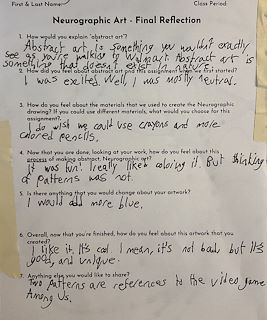 First & Last Name:
Class Period:
Neurographic Art - Final Reflection
1. How would you explain "abstract art"?
Abstract art is something you wouldn't exactly
see as you're walking to Walmart. Abstract art is
something that doesn't exist in nature.
2. How did you feel about abstract art and this assignment when we first started?
I was excited. Well, I was mostly neutral.
3. How do you feel about the materials that we used to create the Neurographic
drawing? If you could use different materials, what would you choose for this
assignment?
I do wish we could use crayons and more
colored pencils.
4. Now that you are done, looking at your work, how do you feel about this
process of making abstract, Neurographic art?
It was fun! I really like coloring it. But thinking
of patterns was not.
5. Is there anything that you would change about your artwork?
I would add more blue.
6. Overall, now that you're finished, how do you feel about this artwork that you
created?
I like it. It's cool. I mean, it's not bad, but It's
good, and unique.
7. Anything else you would like to share?
Two patterns are references to the video game
Among Us.